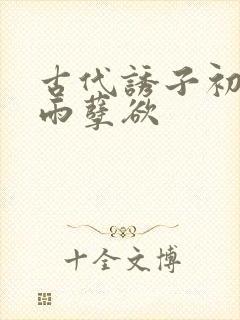 古代誘子初
雨孽欲
十全文博